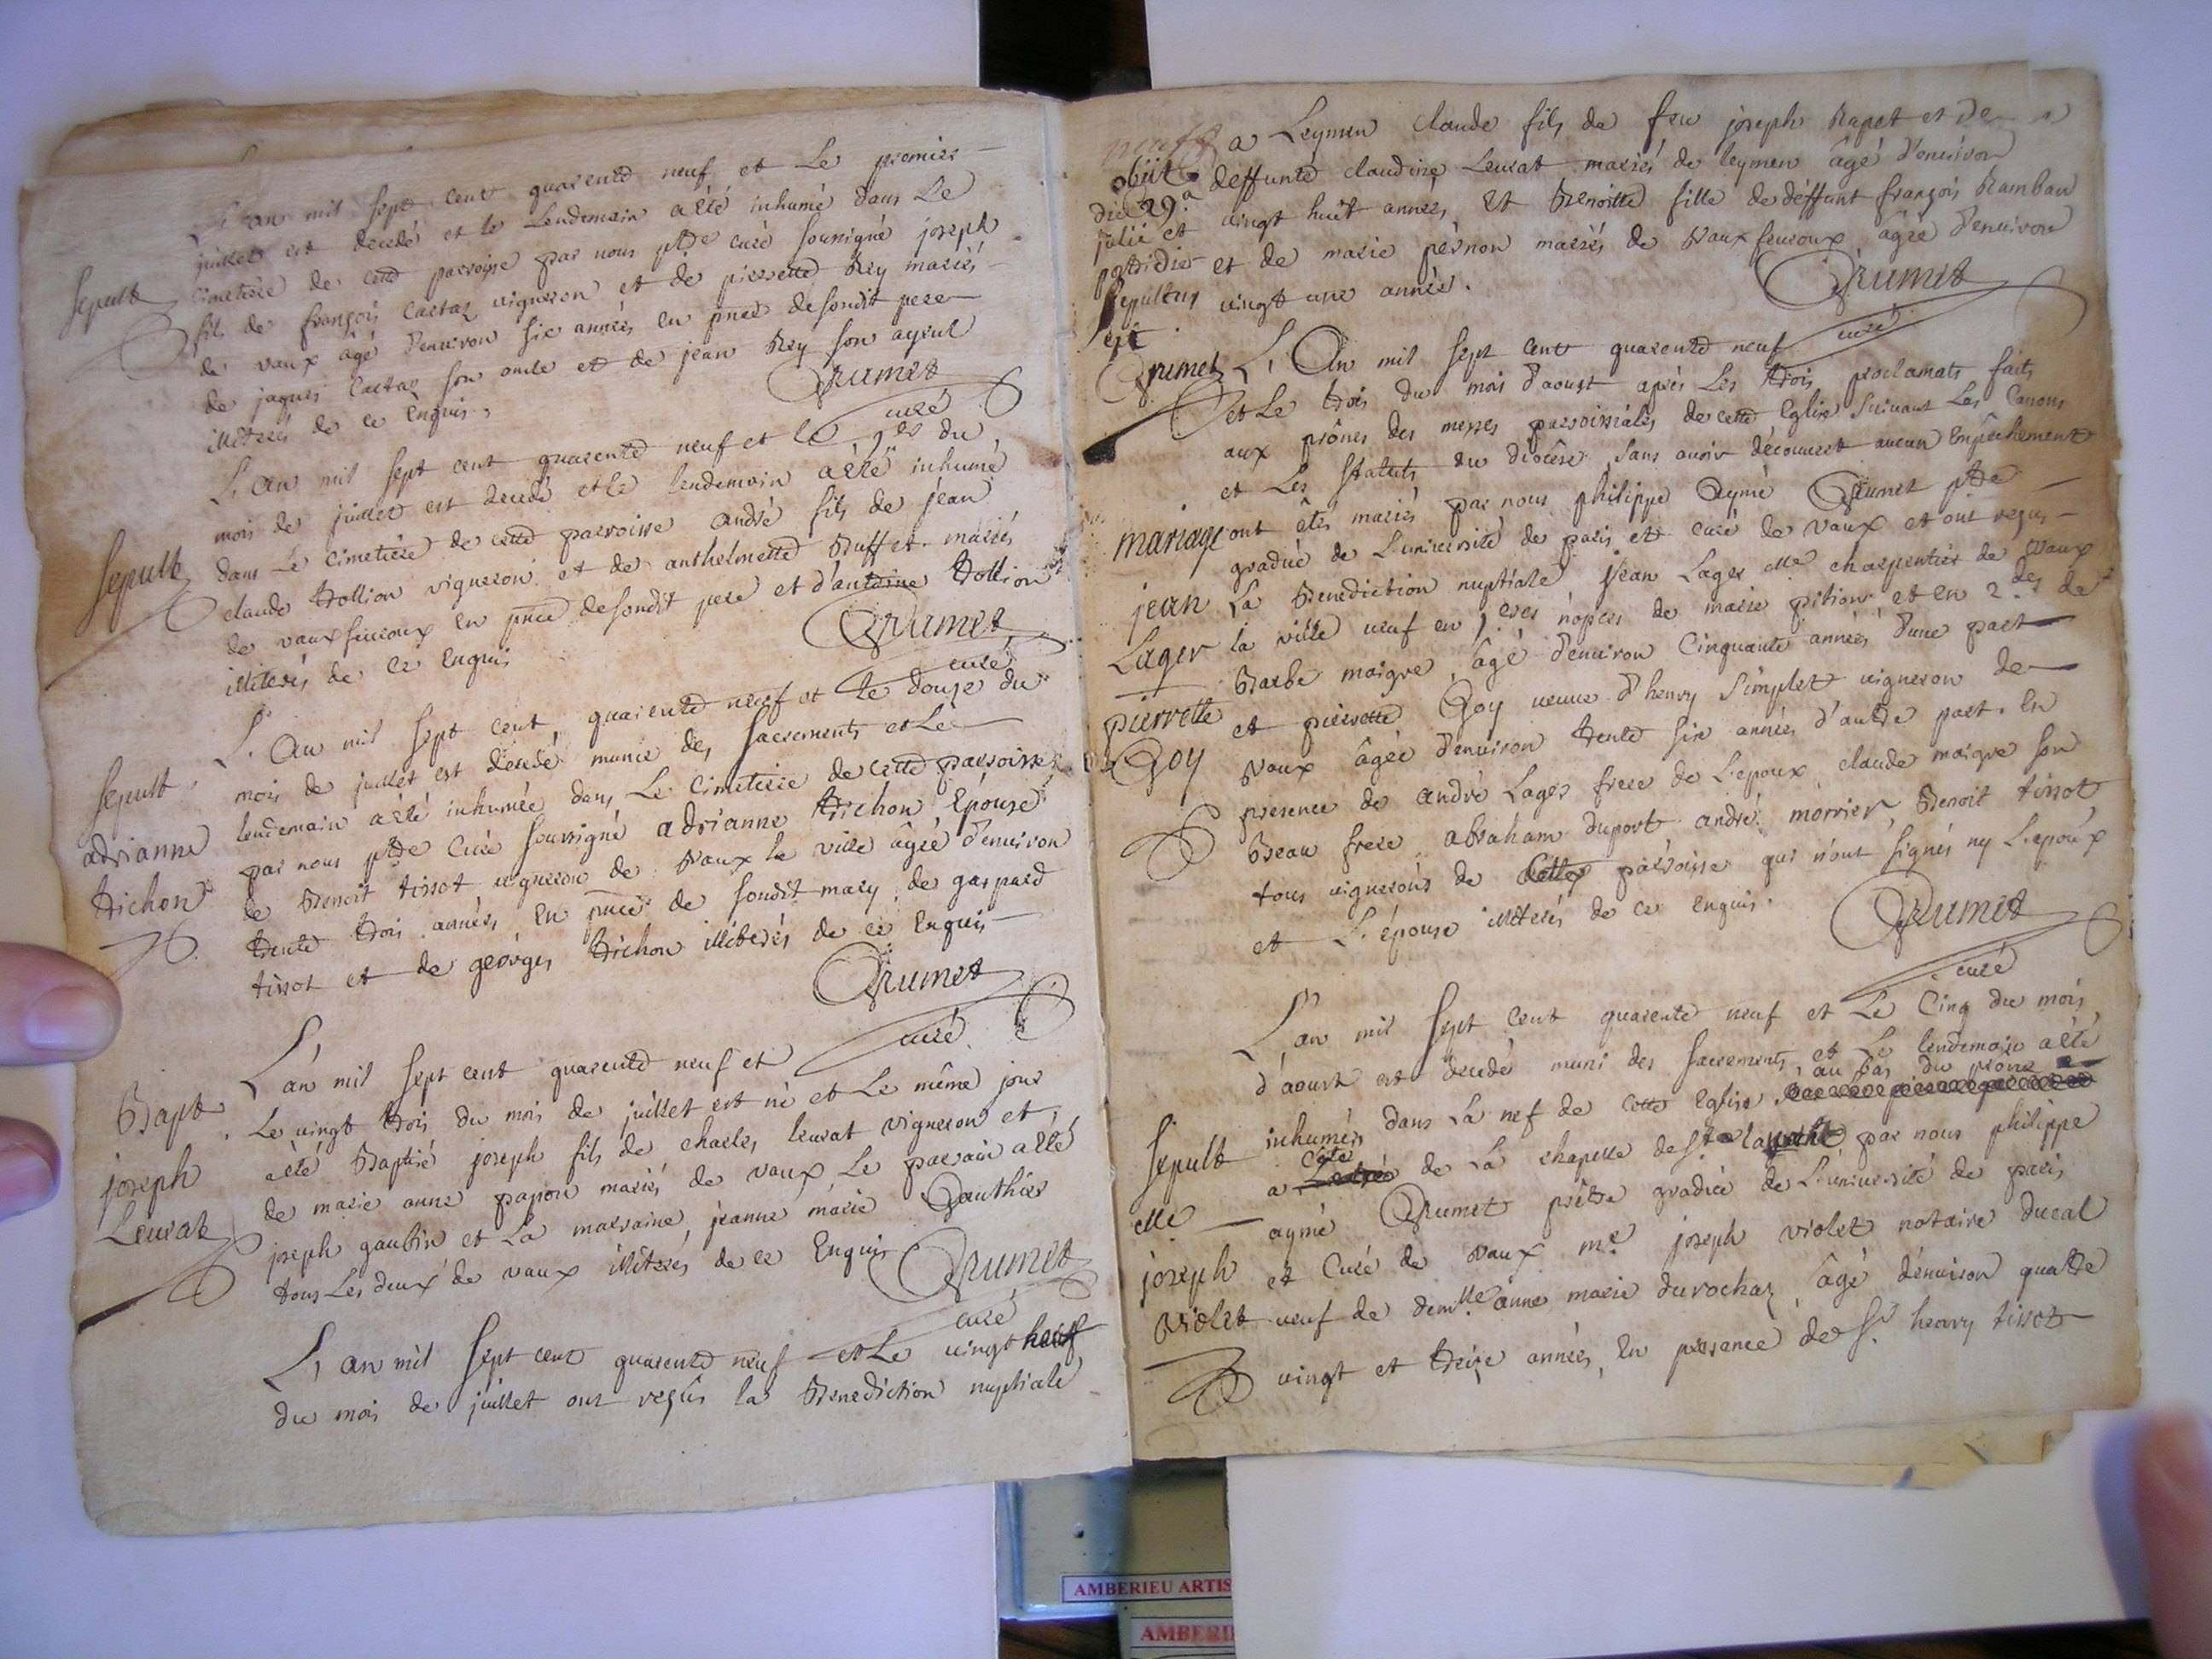 L'an mil sept cent quarente neuf et Le premier
juillet est decedé et le Lendemain a été inhumé dans Le
Sepult cimetiere de cette parroisse par nous ptre curé soussigné joseph
fils de françois Cartaz vigneron et de pierrette Rey mariés
de vaux âgé d'environ six années en pnce de sondit pere
de jaques Cartaz son oncle et de jean Rey son ayeul
illiterés de ce Enquis.
Grumet
curé
L'an mil sept cent quarente neuf et le 1er du
mois de juillet est decedé et le lendemain a été inhumé
Sepult dans Le cimetiere de cette parroisse andré fils de jean
claude trollion vigneron et de anthelmette Buffet mariés
de vaux fevroux en pnce de sondit pere et d'antoine trollion
illiterés de ce Enquis
Grumet
curé
L'an mil sept cent quarente neuf et le douze du
Sepult mois de juillet est decedé munie des sacrements et Le
adrianne lendemain a été inhumée dans Le Cimetiere de cette parroisse
trichon par nous ptre Curé soussigné adrianne trichon Epouse
de Benoit tissot vigneron de Vaux la ville âgée d'environ
trente trois années, En pnce de sondit mary, de gaspard
tissot et de georges trichon illiterés de ce Enquis
Grumet
curé
L'an mil sept cent quarente neuf et
Bapt. Le vingt trois du mois de juillet est né et Le même jour
joseph a été Baptisé joseph fils de charles leurat vigneron et
Leurat de marie anne papon mariés de vaux Le parrain a été
joseph gaubin et La marraine jeanne marie Gauthier
tous Les deux de vaux illiterés de ce Enquis
Grumet
curé
L'an mil sept cent quarente neuf et Le vingt neuf
du mois de juillet ont reçûs la Benediction nuptiale
a Leymen claude fils de feu joseph Rapet et de
obiit deffunte claudine Leurat mariés de leymen âgé d'environ
die 29a vingt huit années, Et Benoitte fille de deffunt françois Rambau
julii et et de marie pernon mariés de Vaux fevroux âgée d'environ
postridie vingt une années.
sepultus
est
Grumet
Grumet
curé
L'An mil sept cent quarente neuf
et Le trois du mois d'aoust aprés Les trois proclamats faits
aux prônes des messes parroissiales de cette Eglise suivant Les Canons
et Les statuts du diocése, sans avoir découvert aucun Empêchement
mariage ont êtés mariés par nous philippe Aymé Grumet ptre
gradué de L'université de paris et curé de Vaux et ont reçus
jean La Benediction nuptiale jean Lager me charpentier de Vaux
Lager la ville veuf en 1eres nopces de marie pition et en 2des de
Barbe maigre, âgé d'environ Cinquante années d'une part
pierrette et pierrette Goy veuve d'henry Simplet vigneron de
Goy Vaux âgée d'environ trente six années d'autre part. En
presence de andré Lager frere de L'epoux, claude maigre son
Beau frere abraham duport, andré morrier, Benoit tissot
tous vignerons de cette parroisse qui n'ont signés ny L'epoux
et L'épouse illiterés de ce Enquis.
Grumet
curé
L'an mil sept cent quarente neuf et Le Cinq du mois
d'aoust est decedé muni des sacrements et Le lendemain a été
au bas du prône
Sepult inhumés dans La nef de cette Eglise
côté
a de La chapelle de St par nous philippe
Me aymé Grumet prêtre gradué de L'université de paris
joseph et Curé de Vaux me joseph violet notaire ducal
Violet veuf de demlle anne marie durochaz, âgé d'environ quatre
vingt et treize années, En presence de Sr henry tissot
AMBERIEU ARTIS